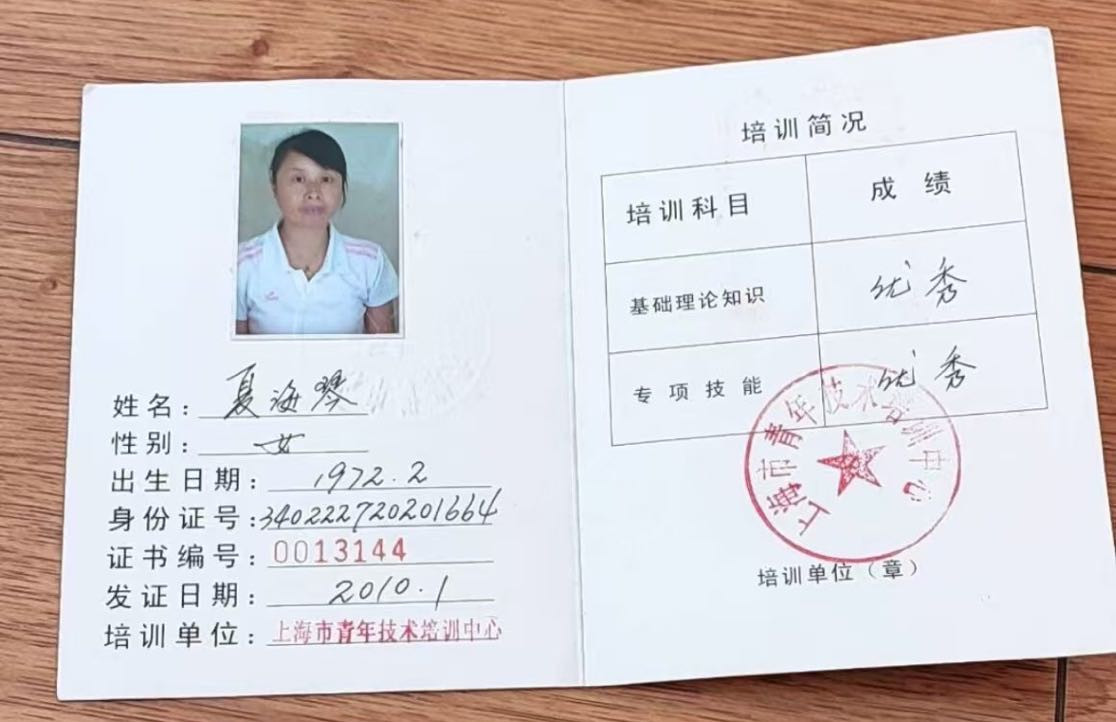 姓名：夏海琴
性别：女
出生日期：1972.2
身份证号：340222720201664
证书编号：0013144
发证日期：2010.1
培训单位：上海市青年技术培训中心
培训简况
培训科目 成绩
基础理论知识 优秀
专项技能 优秀
上海市青年技术培训中心
培训单位（章）